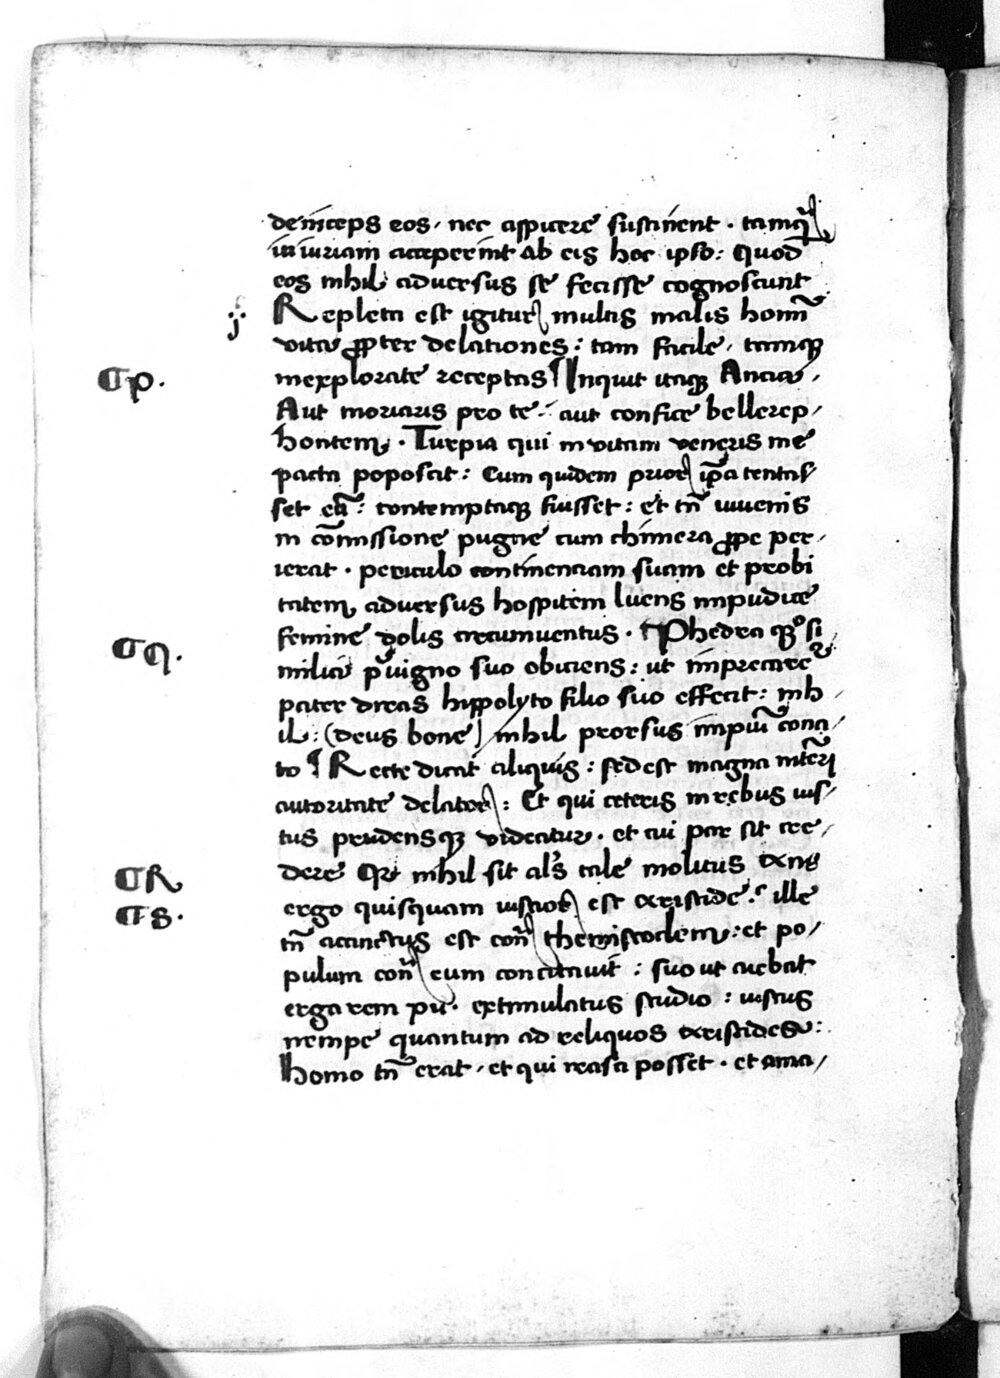 deinceps eos, nec aspicere sustinent. tamq̃
iniuriam acceperint ab eis hoc ipso: Quod
eos nihil adversus se fecisse cognoscunt
Repleta est igitur multis malis homĩ
vita ꝓpter delationes: tam facile, tamqꝫ
¶p.
inexplorate receptas ¶ Inquit itaqꝫ
Aut moriaris pro te aut confice bellerep/
hontem. Turpia qui in vitam veneris me
pacta poposcit: Cum quidem prior ip̃a tentas/
set eũ: contemptaqꝫ fuisset: et tñ iuvenis
in cõmissione pugne cum chimera ꝓpe per/
ierat. periculo continentiam suam et probi
tatem adversus hospitem luens impudice
femine dolis circumventus. ¶ Phedra qꝫ si/
¶q.
milia pͥuigno suo obiciens: ut imprecare
pater diras hippolyto filio suo effecit: nih/
il: (deus bone) nihil prorsus impiũ cona/
to ¶ Recte dicat aliquis: sed est magna intẽ
autoritate delator: Et qui ceteris in rebus ius/
tus prudensqꝫ videatur. et cui par sit cre/
¶R
dere nihil sit al's tale molitus
¶s.
ergo quisquam iustior est aristide? ille
tñ accinctus est coñ themistoclem: et po/
pulum coñ eum concitavit: suo ut aiebat
erga rem pu. extimulatus studio: iustus
nempe quantum ad reliquos aristides:
homo tñ erat, et qui irasci posset. et ama/